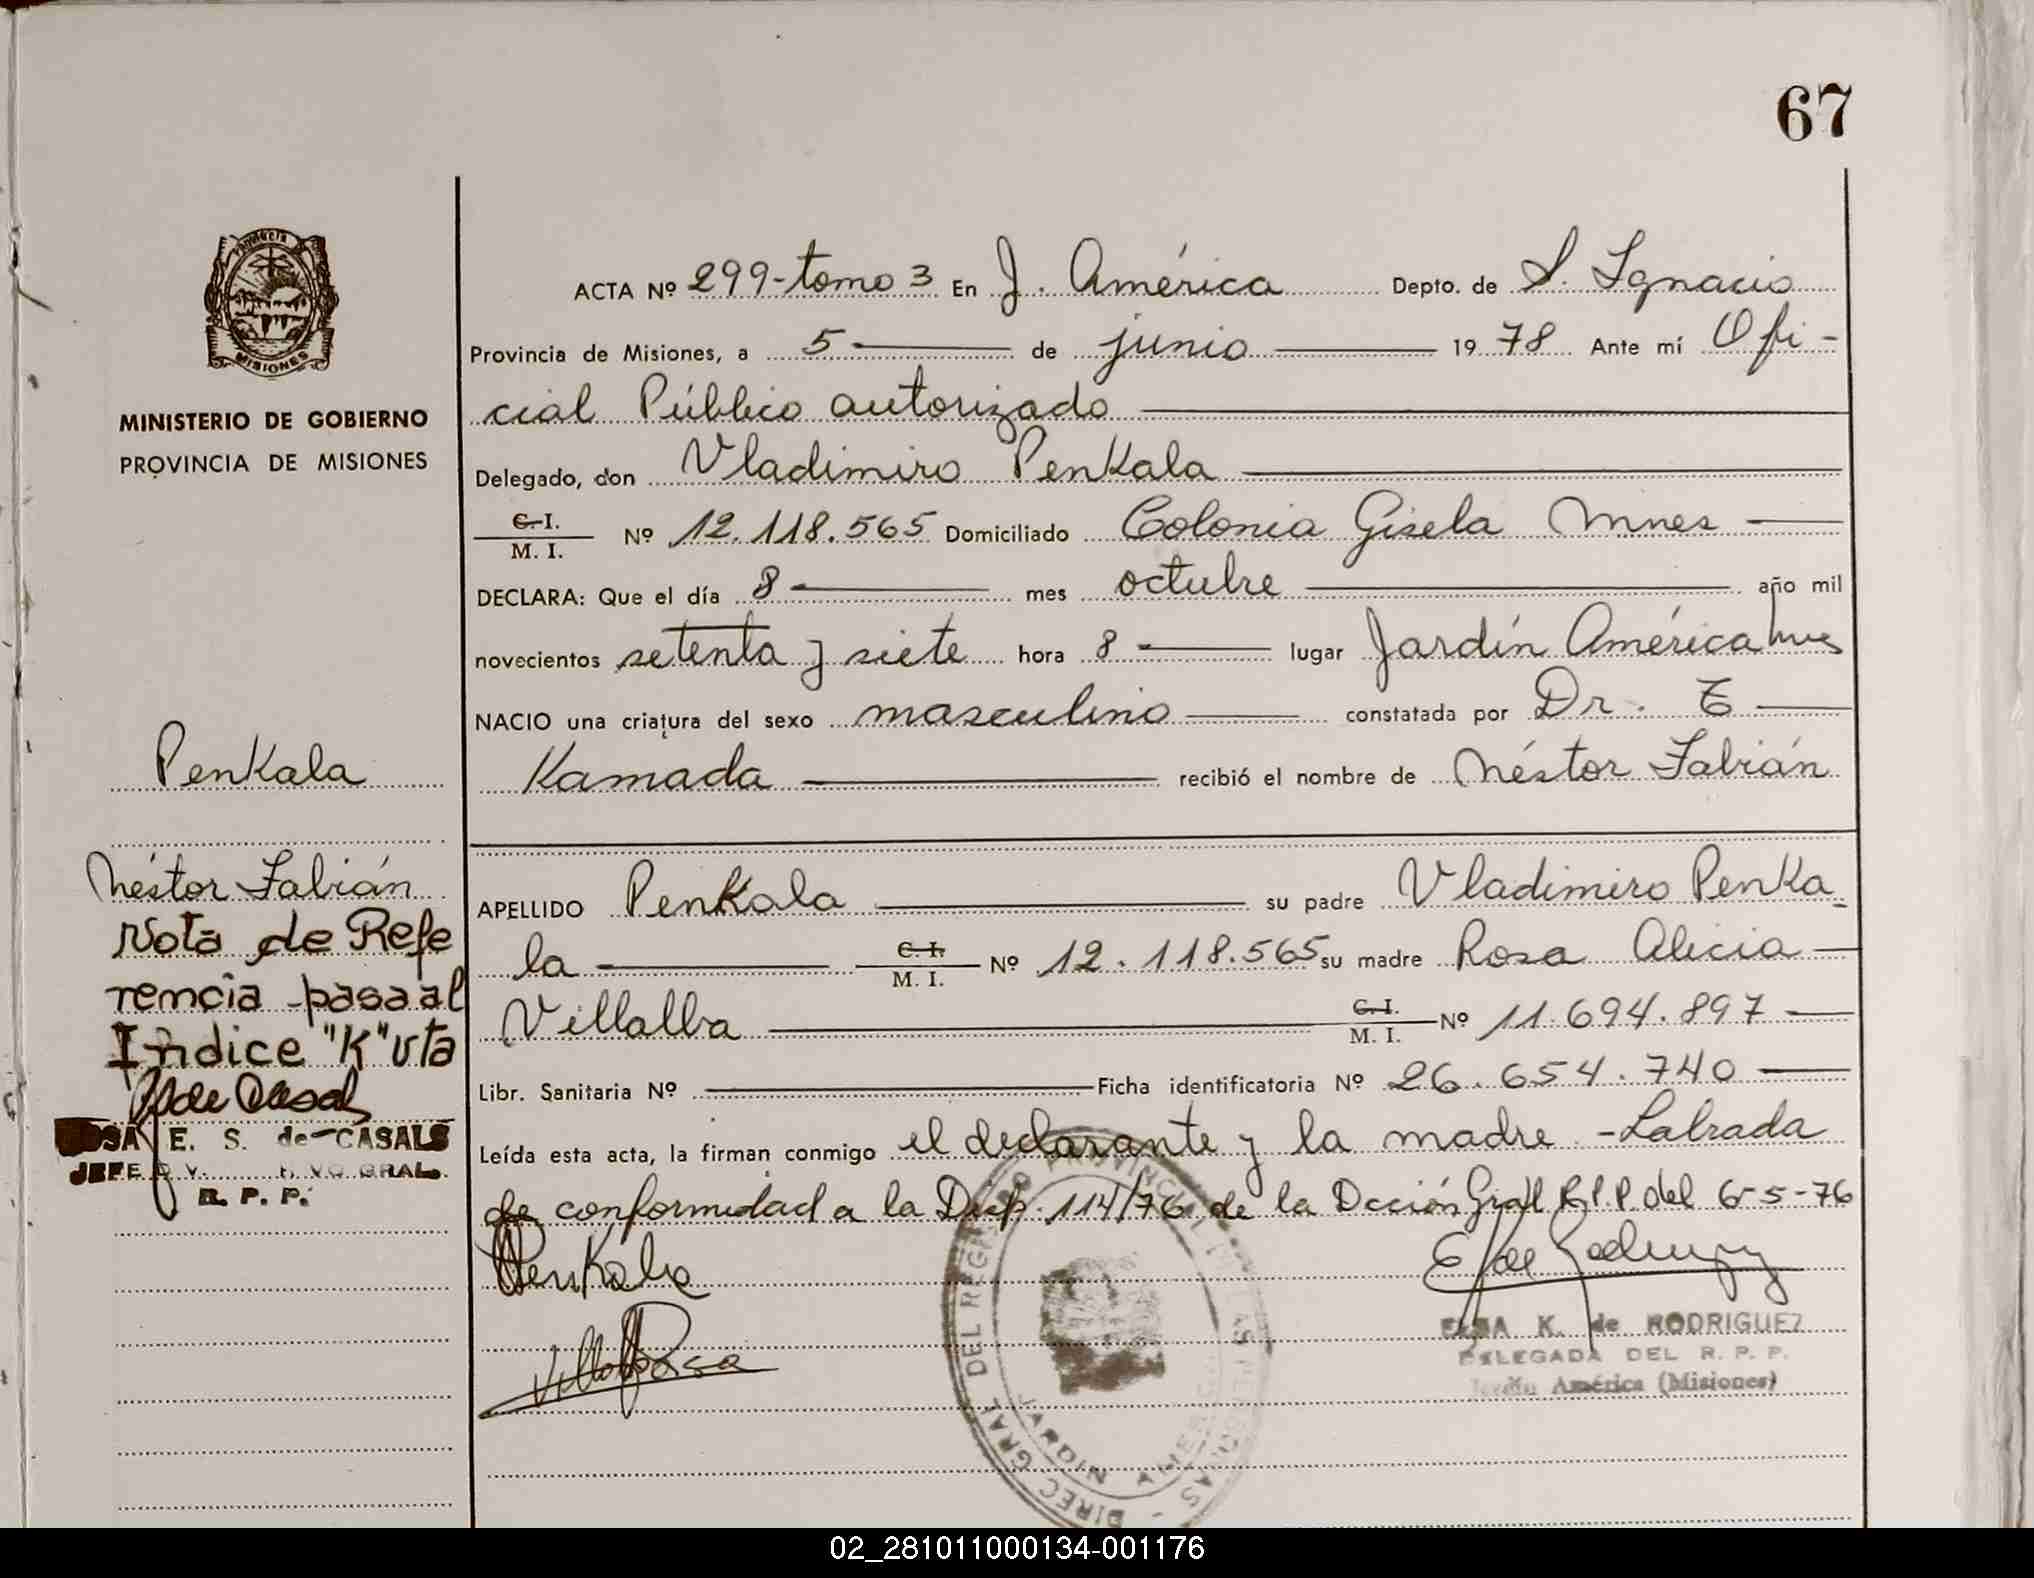 67
Provincia
MISIONES
MINISTERIO DE GOBIERNO
PROVINCIA DE MISIONES
ACTA Nº 299-tomo 3 En J. América Depto. de S. Ignacio
Provincia de Misiones, a 5 de junio 1978 Ante mí Ofi-
cial Público autorizado
Delegado, don Vladimiro Penkala
C.I.
M. I. Nº 12.118.565 Domiciliado Colonia Gisela Mnes
DECLARA: Que el día 8 mes octubre año mil
novecientos setenta y siete hora 8 lugar Jardín América Mnes
NACIO una criatura del sexo masculino constatada por Dr. T
Kamada recibió el nombre de Néstor Fabián
APELLIDO Penkala su padre Vladimiro Penka
la C.I. M. I. Nº 12.118.565 su madre Rosa Alicia
Villalba C.I. M. I. Nº 11.694.897
Libr. Sanitaria Nº Ficha identificatoria Nº 26.654.740
Leída esta acta, la firman conmigo el declarante y la madre -Labrada
de conformidad a la Disp. 114/76 de la Dcción Gral R.P.P. del 6-5-76
Penkala
Villalba Rosa
ELSA K. de RODRIGUEZ
DELEGADA DEL R. P. P.
Jardín América (Misiones)
DIREC GRAL DEL REGISTRO PROVINCIAL DE LAS PERSONAS
JARDIN AMERICA
Penkala
Néstor Fabián
Nota de Refe
rencia pasa al
Indice "K" vta
E. S. de CASALS
JEFE
R. P. P.
02_281011000134-001176